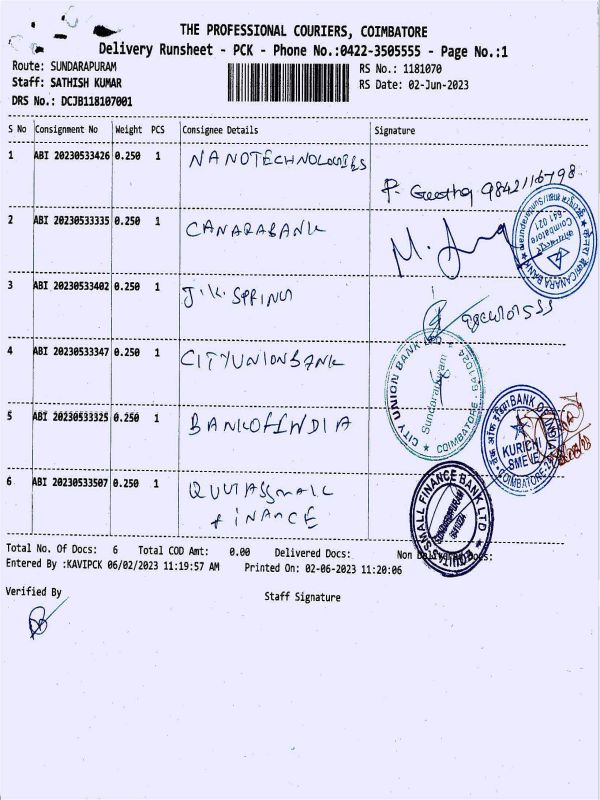 THE PROFESSIONAL COURIERS, COIMBATORE
Delivery Runsheet - PCK - Phone No.:0422-3505555 - Page No.:1
Route: SUNDARAPURAM RS No.: 1181070
Staff: SATHISH KUMAR RS Date: 02-Jun-2023
DRS No.: DCJB118107001
S No Consignment No Weight PCS Consignee Details Signature
1 ABI 20230533426 0.250 1 NANOTECHNOLOGIES
P. Geetha 9842116798
2 ABI 20230533335 0.250 1 CANARABANK
CANARA BANK Sundarapuram
Coimbatore
641 021
3 ABI 20230533402 0.250 1 J.K. SPRING
4 ABI 20230533347 0.250 1 CITYUNIONBANK
CITY UNION BANK
Sundarapuram
COIMBATORE 641024
5 ABI 20230533325 0.250 1 BANKOFINDIA
BANK OF INDIA
KURICHI
SME
COIMBATORE
6 ABI 20230533507 0.250 1 QUUTASSMALL
FINANCE
SMALL FINANCE BANK LTD
Total No. Of Docs: 6 Total COD Amt: 0.00 Delivered Docs: Non Delivered Docs:
Entered By :KAVIPCK 06/02/2023 11:19:57 AM Printed On: 02-06-2023 11:20:06
Verified By Staff Signature